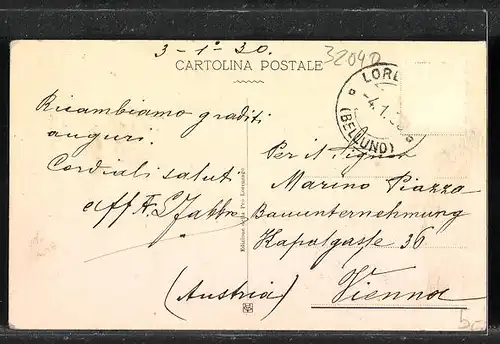 3-1º-30.
32040
CARTOLINA POSTALE
LORE
-4.1.
(BELLUNO)
Ricambiamo graditi
auguri.
Cordiali saluti
aff
Per il Signor
Marino Piazza
Bauunternehmung
Kapalgasse 36
(Austria) Vienna
Edizione della Pro Lorenzago